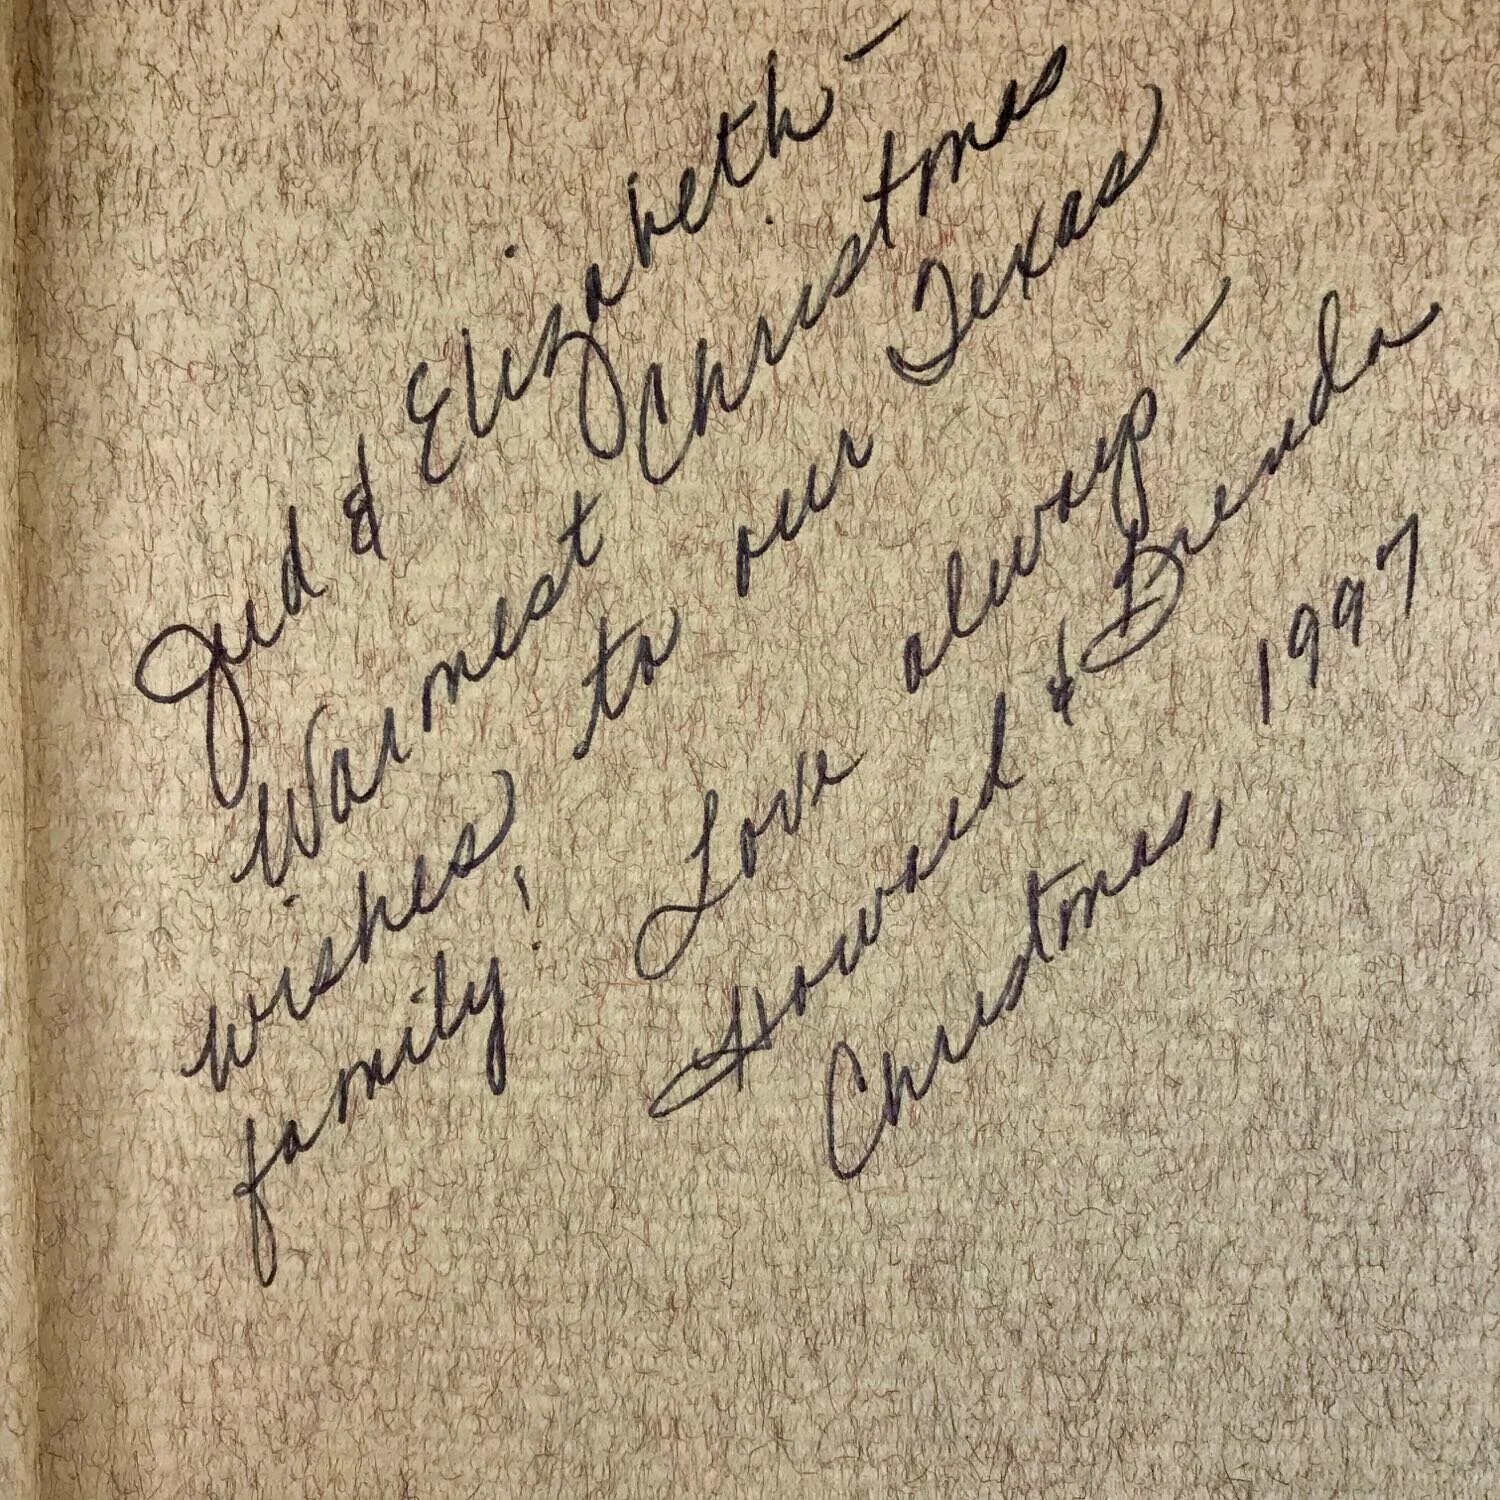 Jud & Elizabeth -
Warmest Christmas
wishes to our Texas
family! Love always -
Howard & Brenda
Christmas, 1997